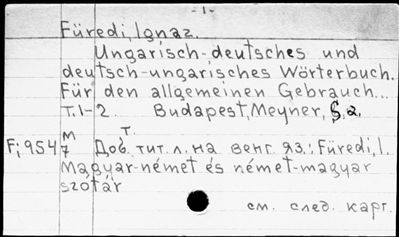 - 1 -
Füredi, Ignaz.
Ungarisch-deutsches und
deutsch-ungarisches Wörterbuch.
Für den allgemeinen Gebrauch...
T.1-2. Budapest, Meyner, S.a.
M T.
F; 954/7 Доб. тит. л. на венг. яз.: Füredi, I.
Magyar-német és német-magyar
szótár
см. след. карт.